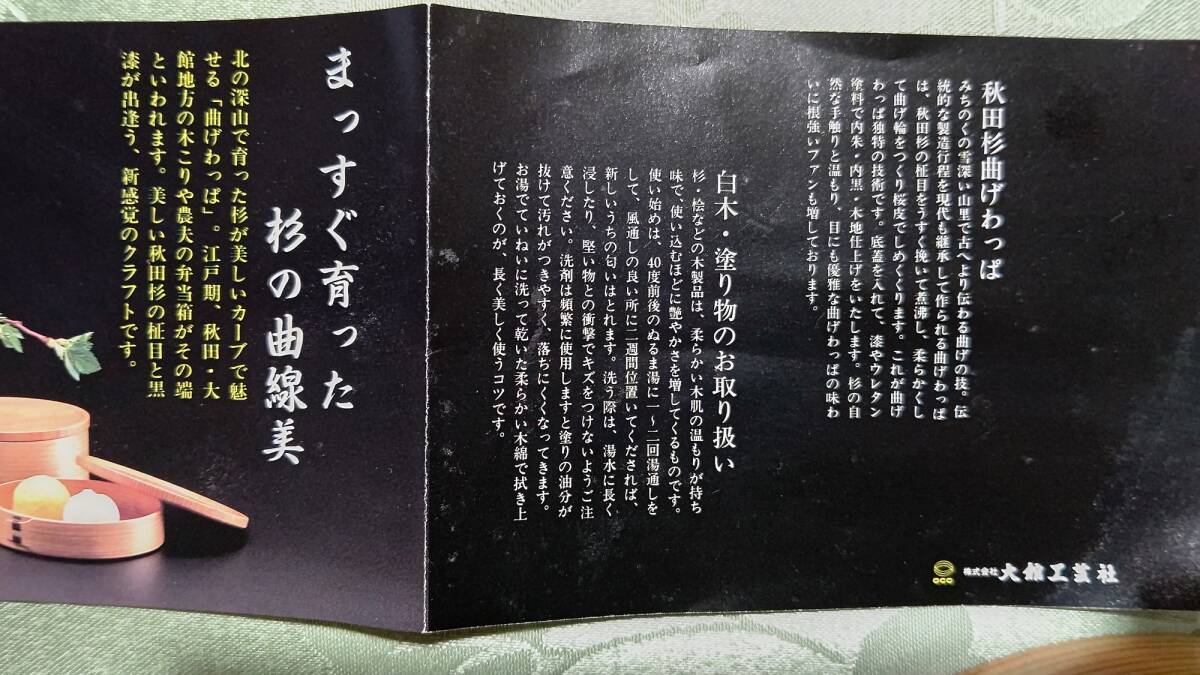 秋田杉曲げわっぱ
みちのくの雪深い山里で古へより伝わる曲げの技。伝
統的な製造行程を現代も継承して作られる曲げわっぱ
は、秋田杉の柾目をうすく挽いて煮沸し、柔らかくし
て曲げ輪をつくり桜皮でしめくくります。これが曲げ
わっぱ独特の技術です。底蓋を入れて、漆やウレタン
塗料で内朱・内黒・木地仕上げをいたします。杉の自
然な手触りと温もり、目にも優雅な曲げわっぱの味わ
いに根強いファンも増しております。
白木・塗り物のお取り扱い
杉・桧などの木製品は、柔らかい木肌の温もりが持ち
味で、使い込むほどに艶やかさを増してくるものです。
使い始めは、40度前後のぬるま湯に一～二回湯通しを
して、風通しの良い所に二週間位置いてくだされば、
新しいうちの匂いはとれます。洗う際は、湯水に長く
浸したり、堅い物との衝撃でキズをつけないようご注
意ください。洗剤は頻繁に使用しますと塗りの油分が
抜けて汚れがつきやすく、落ちにくくなってきます。
お湯でていねいに洗って乾いた柔らかい木綿で拭き上
げておくのが、長く美しく使うコツです。
株式会社 大館工芸社
まっすぐ育った
杉の曲線美
北の深山で育った杉が美しいカーブで魅
せる「曲げわっぱ」。江戸期、秋田・大
館地方の木こりや農夫の弁当箱がその端
といわれます。美しい秋田杉の柾目と黒
漆が出逢う、新感覚のクラフトです。